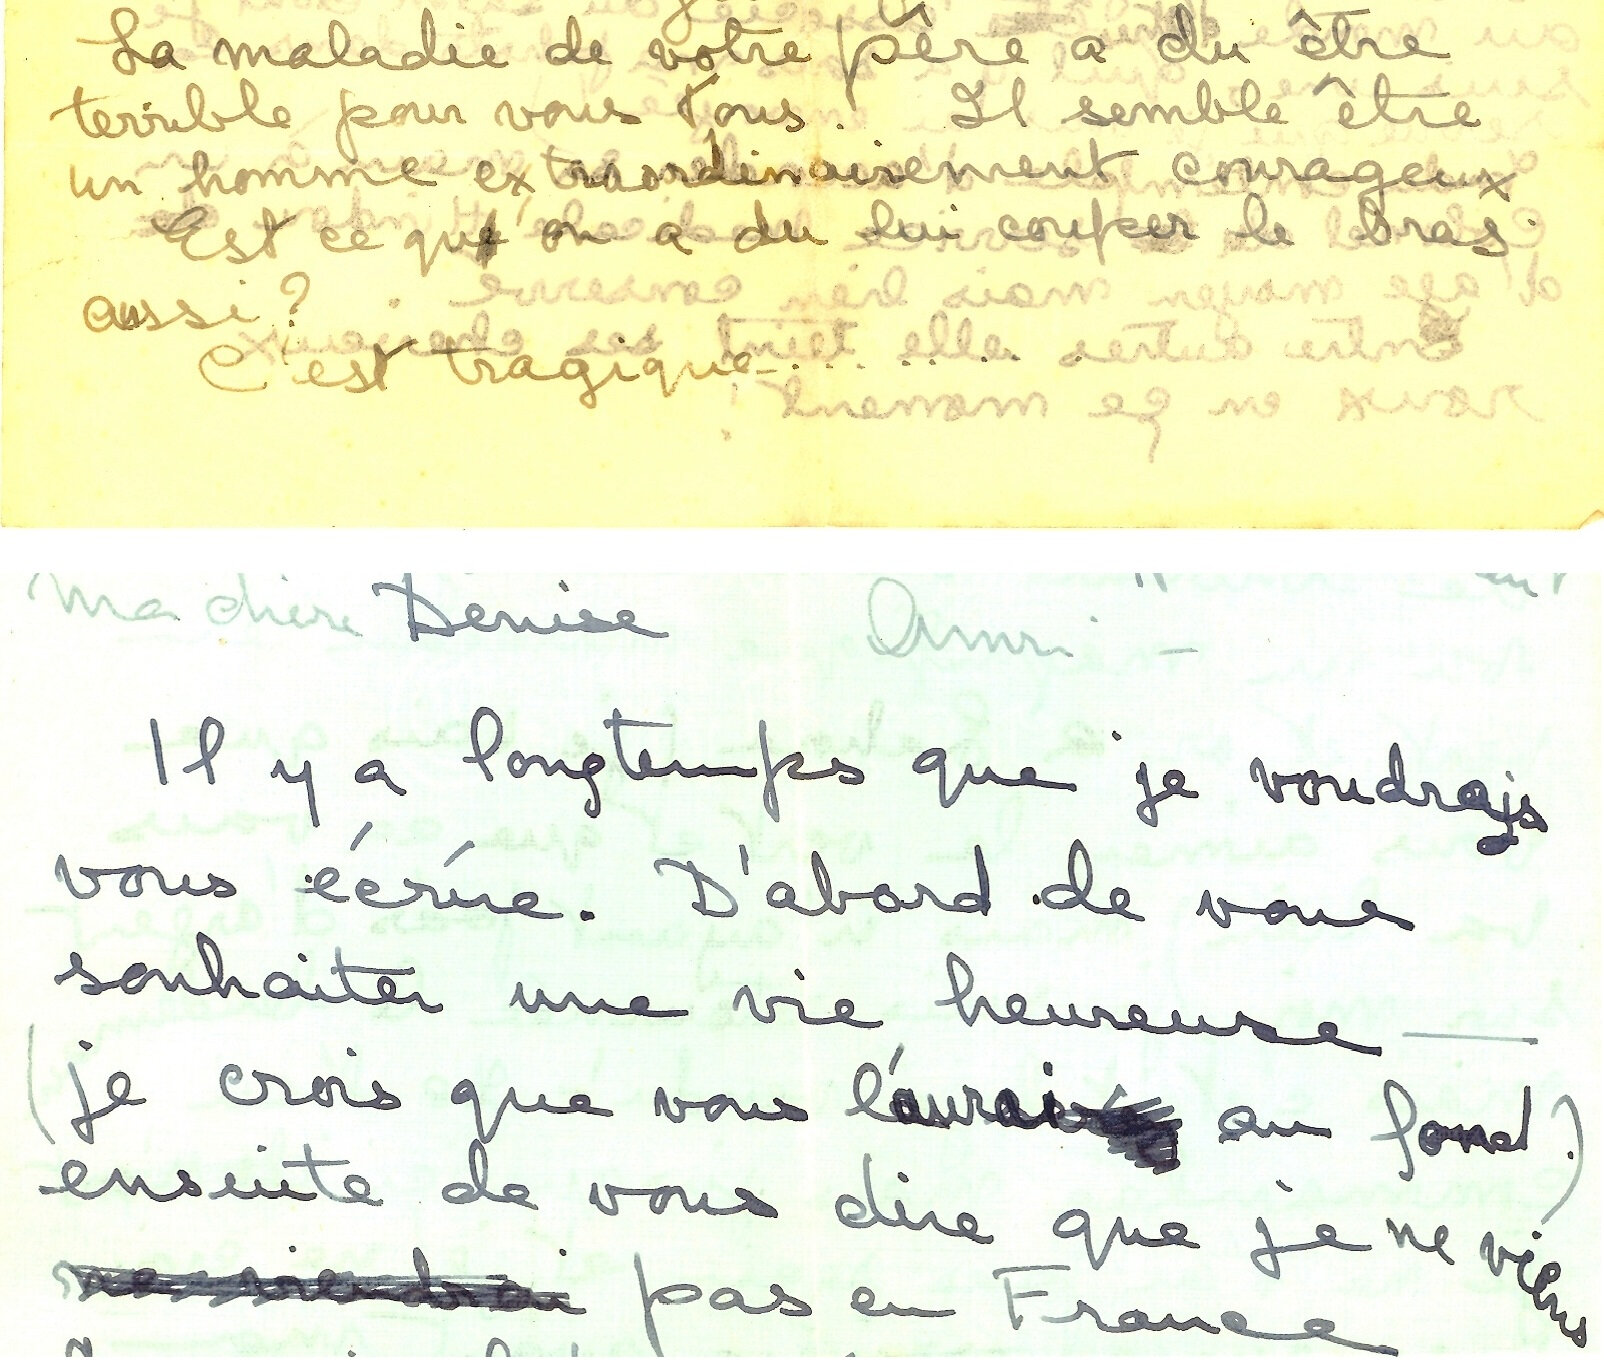 La maladie de votre père a du être
terrible pour vous tous. Il semble être
un homme extraordinairement courageux
Est ce qu'on a du lui couper le bras
aussi?
C'est tragique.......
Ma chère Denise
Il y a longtemps que je voudrais
vous écrire. D'abord de vous
souhaiter une vie heureuse —
(je crois que vous l'aurai au fond)
ensuite de vous dire que je ne viens
pas en France